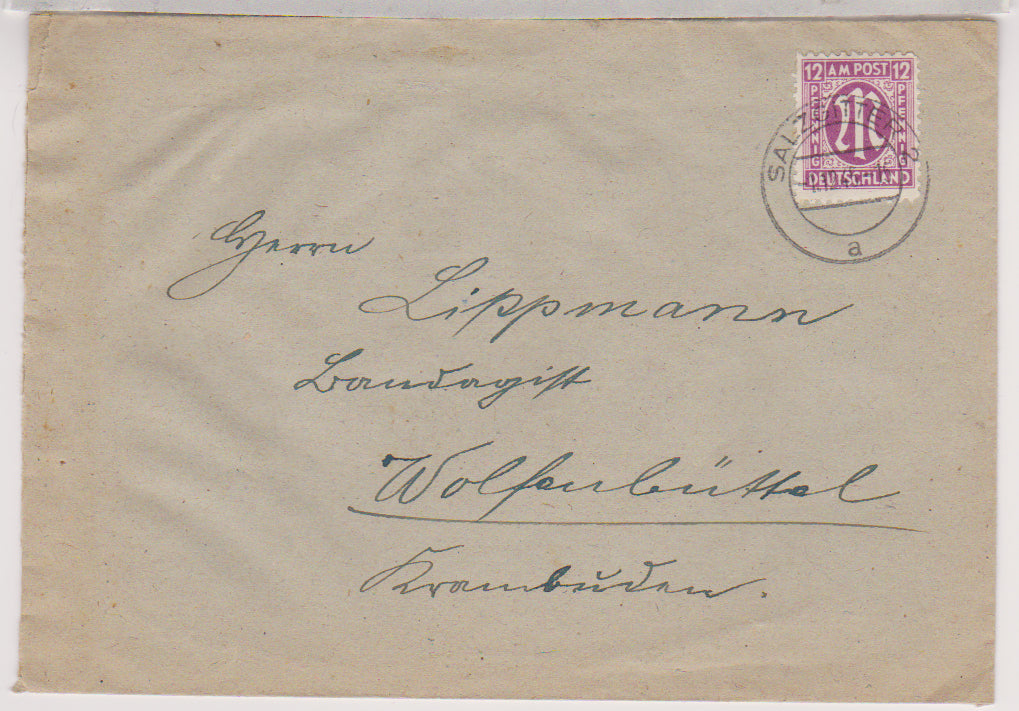 12 AM POST 12
PFENNIG PFENNIG
DEUTSCHLAND
SALZGITTER
a
Herrn
Lippmann
Bandagist
Wolfenbüttel
Krambuden.